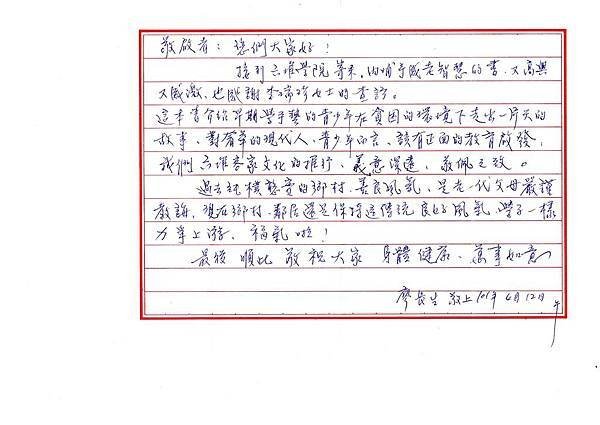 敬啟者：您們大家好！
接到六堆學院寄來，內埔子城老智慧的書，又高興
又感激，也感謝李 女士的查訪。
這本書介紹早期學手藝的青少年在貧困的環境下走出一片天的
故事，對奢華的現代人、青少年而言，該有正面的教育啟發，
我們六堆客家文化的推行，義意深遠，敬佩之致。
過去純樸憨實的鄉村，善良風氣，是老一代父母嚴謹
教誨，現在鄉村，鄰居還是保持這傳統良好風氣，學子一樣
力爭上游，福氣啦！
最後順此 敬祝大家 身體健康、萬事如意
廖長 敬上 101年6月12日 午